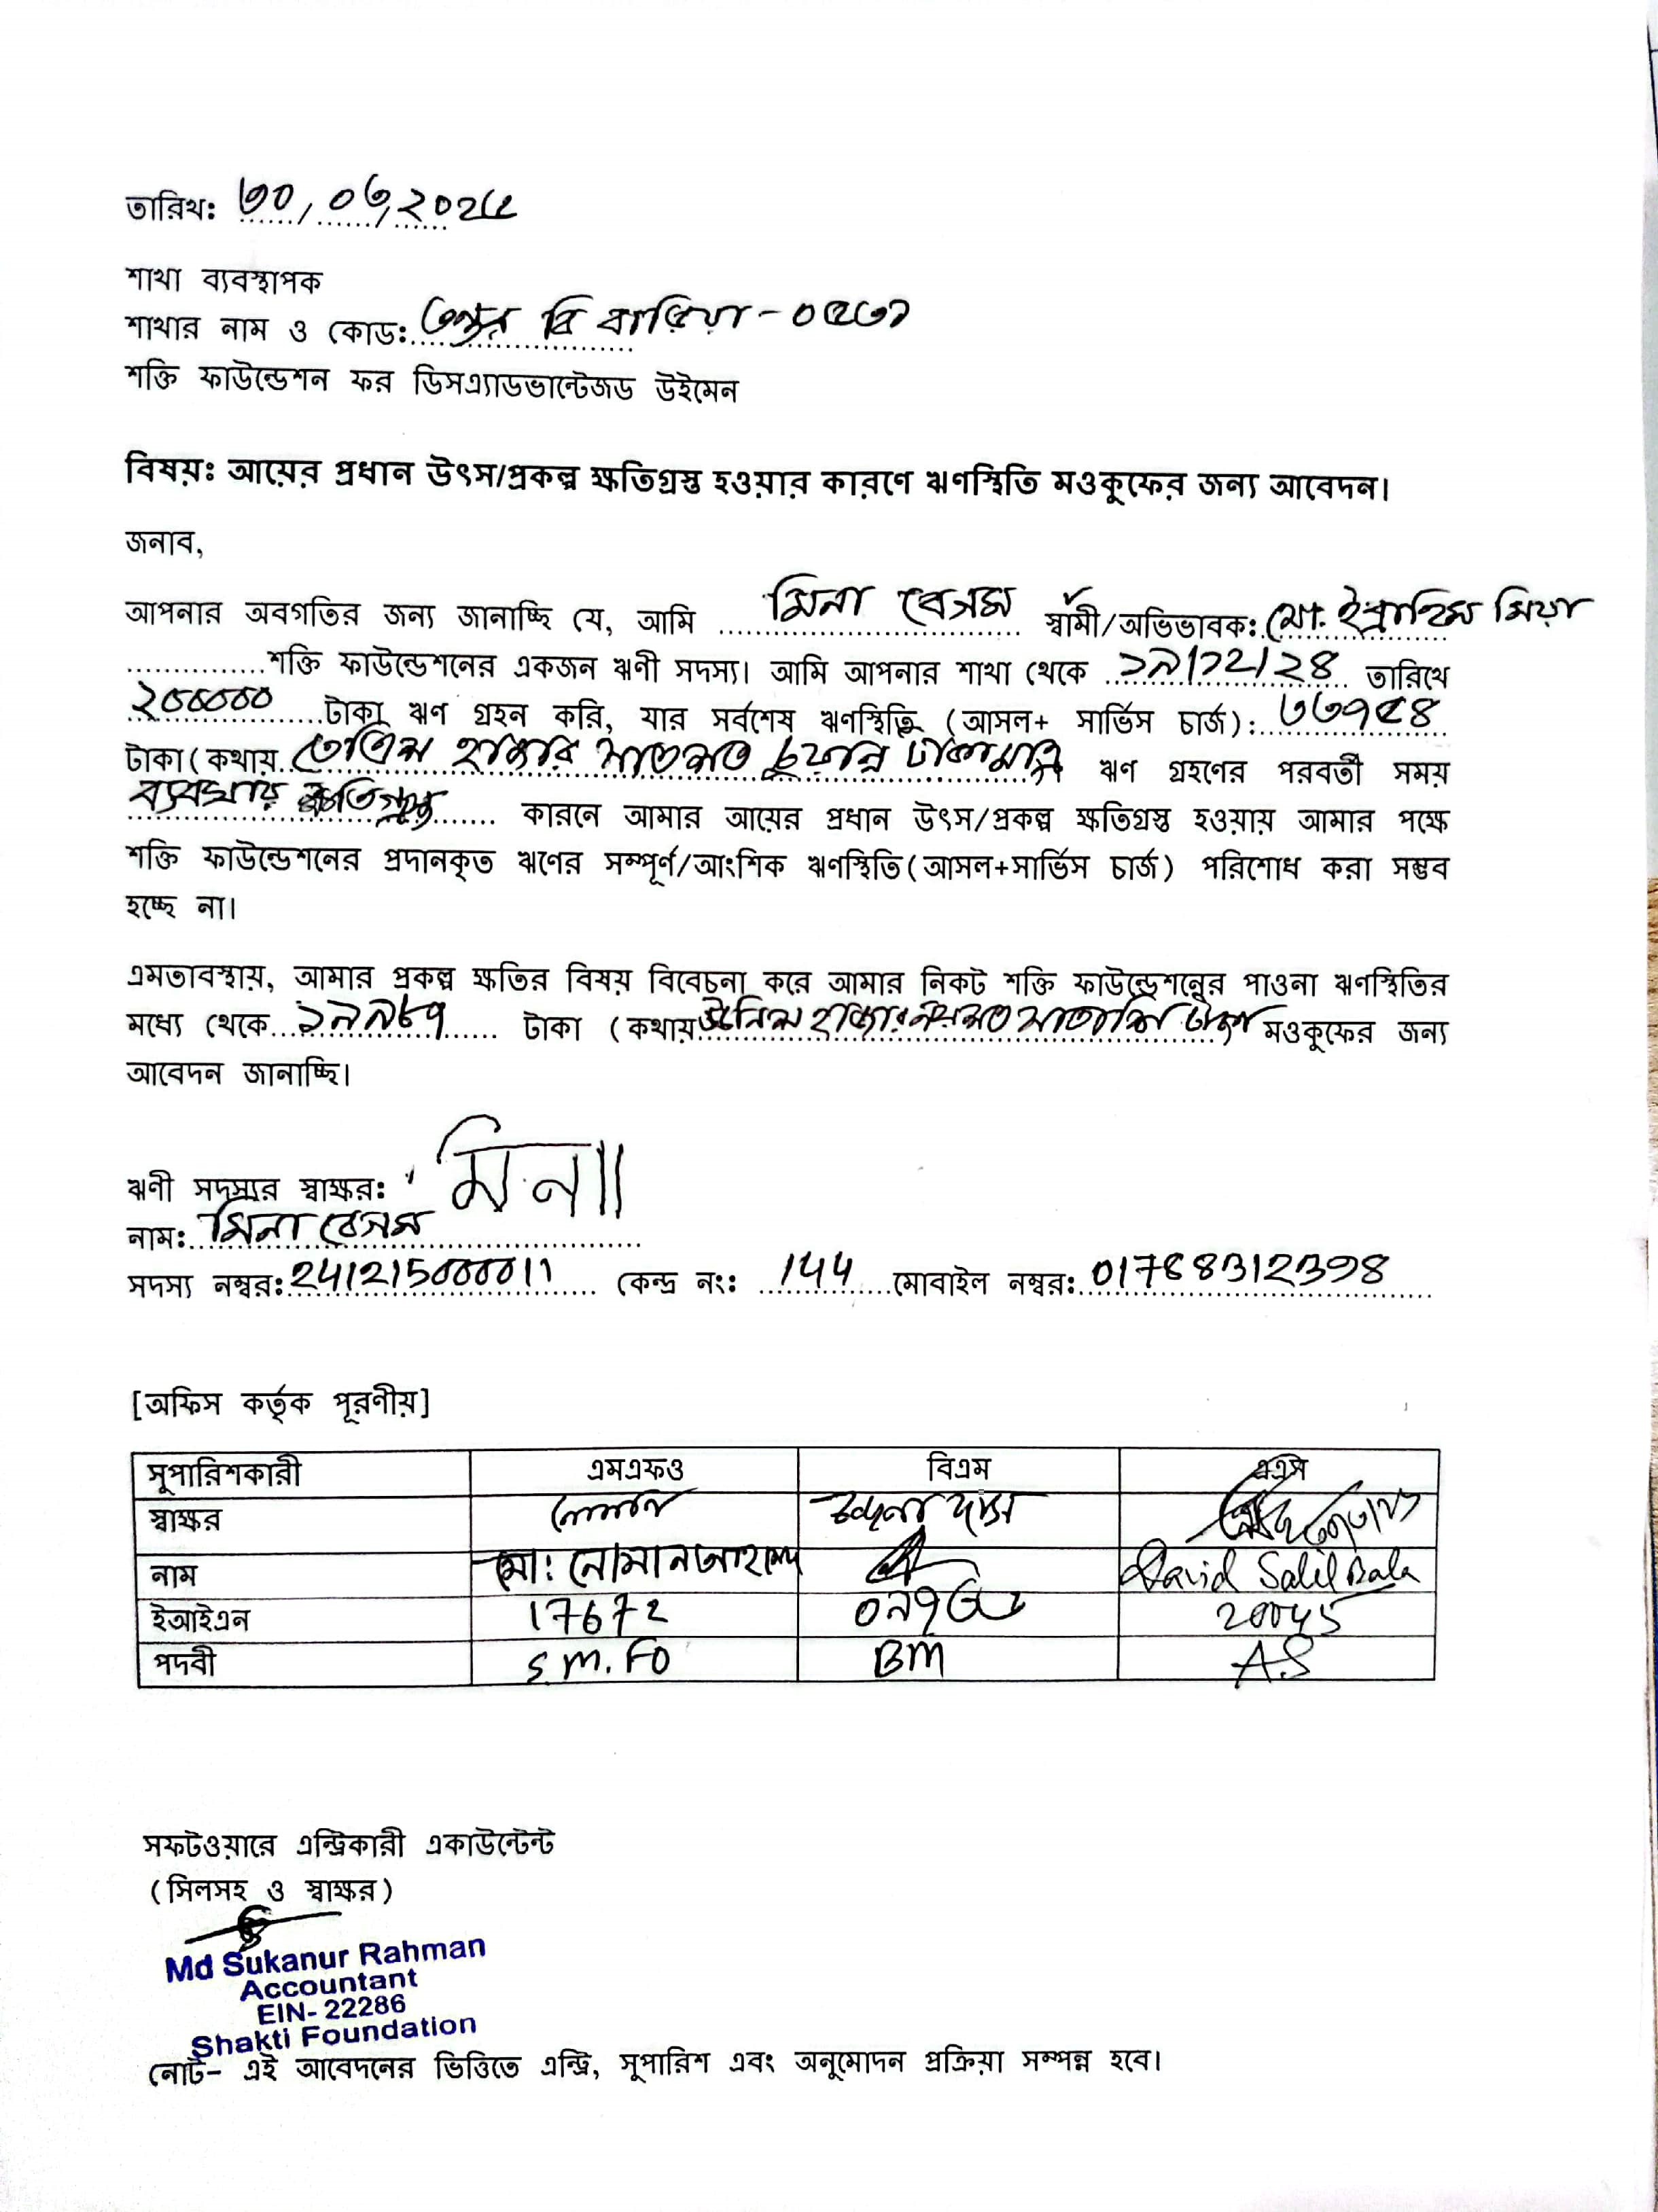 তারিখ: ৩০/০৬/২০২৫
শাখা ব্যবস্থাপক
শাখার নাম ও কোড: বি বাড়িয়া-০৫৩১
শক্তি ফাউন্ডেশন ফর ডিসএ্যাডভান্টেজড উইমেন
বিষয়ঃ আয়ের প্রধান উৎস/প্রকল্প ক্ষতিগ্রস্ত হওয়ার কারণে ঋণস্থিতি মওকুফের জন্য আবেদন।
জনাব,
আপনার অবগতির জন্য জানাচ্ছি যে, আমি মিনা বেগম স্বামী/অভিভাবক: মো. ইব্রাহিম মিয়া
শক্তি ফাউন্ডেশনের একজন ঋণী সদস্য। আমি আপনার শাখা থেকে ১৯/১২/২৪ তারিখে
২০০০০০ টাকা ঋণ গ্রহন করি, যার সর্বশেষ ঋণস্থিতি (আসল+ সার্ভিস চার্জ): ৩৩৭৫৪
টাকা(কথায় তেত্রিশ হাজার সাতশত চুয়ান্ন টাকামাত্র ঋণ গ্রহণের পরবর্তী সময়
ব্যবসায় ক্ষতিগ্রস্ত কারনে আমার আয়ের প্রধান উৎস/প্রকল্প ক্ষতিগ্রস্ত হওয়ায় আমার পক্ষে
শক্তি ফাউন্ডেশনের প্রদানকৃত ঋণের সম্পূর্ণ/আংশিক ঋণস্থিতি(আসল+সার্ভিস চার্জ) পরিশোধ করা সম্ভব
হচ্ছে না।
এমতাবস্থায়, আমার প্রকল্প ক্ষতির বিষয় বিবেচনা করে আমার নিকট শক্তি ফাউন্ডেশনের পাওনা ঋণস্থিতির
মধ্যে থেকে ১৯৯৮৭ টাকা (কথায় উনিশ হাজার নয়শত সাতাশি টাকা মওকুফের জন্য
আবেদন জানাচ্ছি।
ঋণী সদস্যর স্বাক্ষর: মিনা
নাম: মিনা বেগম
সদস্য নম্বর: 241215000011 কেন্দ্র নং: 144 মোবাইল নম্বর: 01788312398
[অফিস কর্তৃক পূরণীয়]
সুপারিশকারী এমএফও বিএম এএস
স্বাক্ষর নোমান
নাম মো: নোমান আহাম্মদ David Salil Bala
ইআইএন 17672 20045
পদবী S.M.FO BM A.S
সফটওয়ারে এন্ট্রিকারী একাউন্টেন্ট
(সিলসহ ও স্বাক্ষর)
Md Sukanur Rahman
Accountant
EIN- 22286
Shakti Foundation
নোট- এই আবেদনের ভিত্তিতে এন্ট্রি, সুপারিশ এবং অনুমোদন প্রক্রিয়া সম্পন্ন হবে।